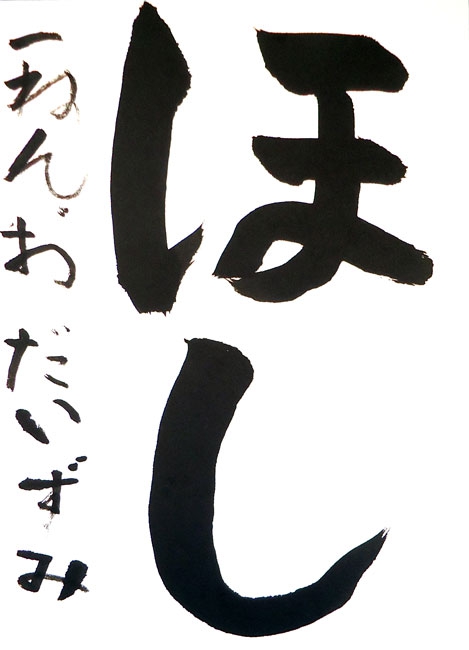 ほし
一ねん お だいずみ